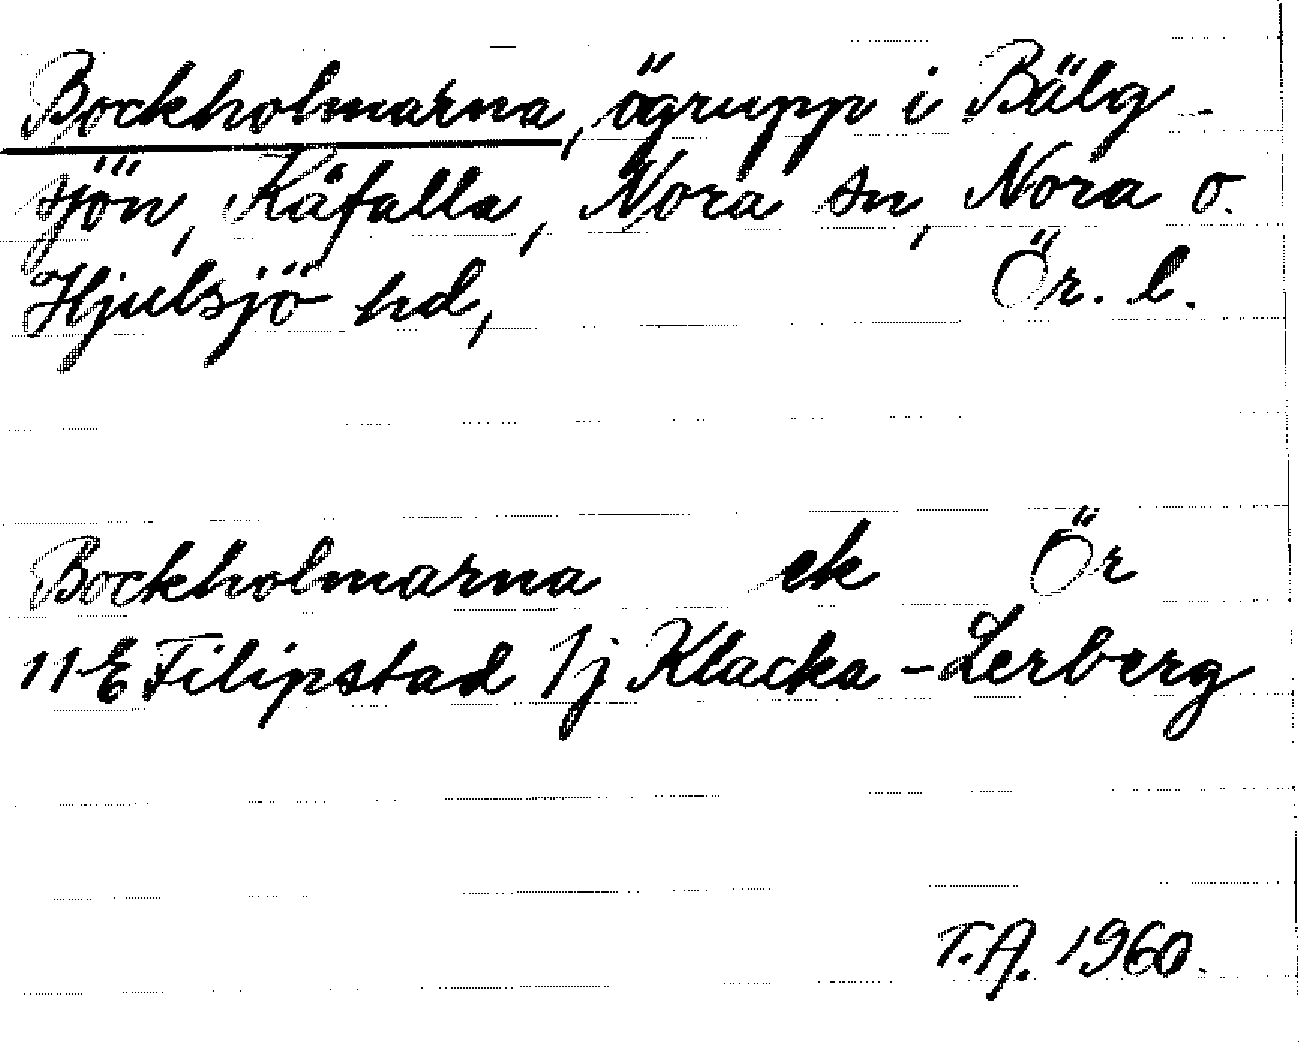 Bockholmarna, ögrupp i Bälg-
sjön, Kåfalla, Nora sn, Nora o.
Hjulsjö hd, Ör. l.
Bockholmarna ek Ör
11E Filipstad 1j Klacka-Lerberg
T.A. 1960.